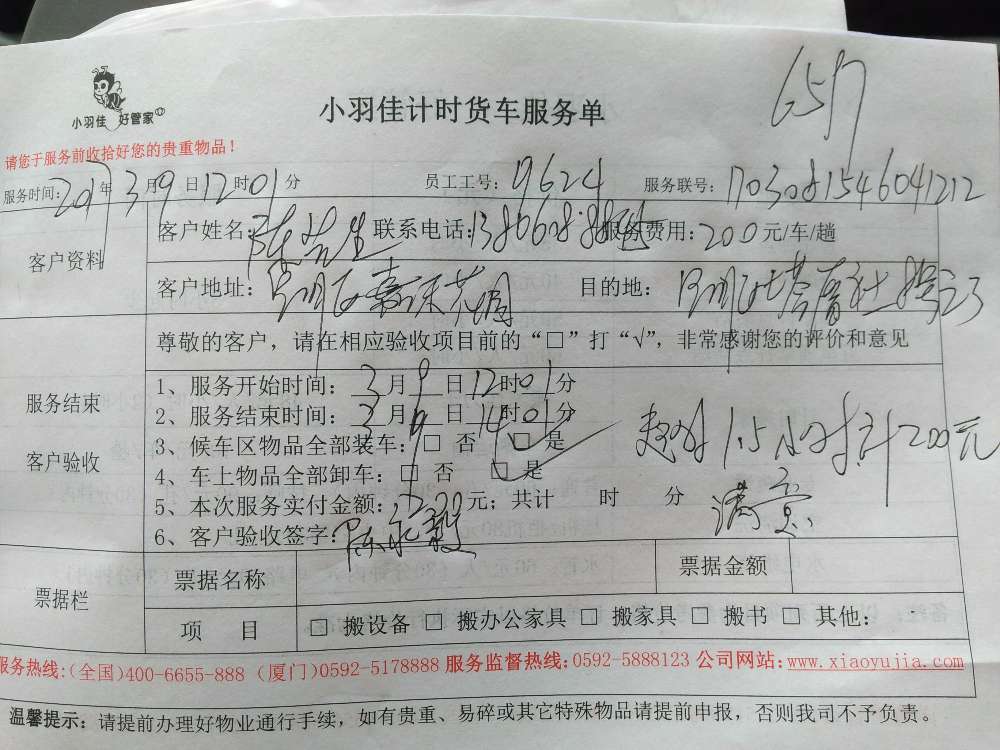 小羽佳 好管家
小羽佳计时货车服务单
请您于服务前收拾好您的贵重物品！
服务时间：2017年3月9日12时01分 员工工号：9624 服务联号：1703081546041212
客户资料
客户姓名：陈先生 联系电话：1386608 服务费用：200元/车/趟
客户地址： 花园 目的地：
尊敬的客户，请在相应验收项目前的“□”打“√”，非常感谢您的评价和意见
服务结束
客户验收
1、服务开始时间：3月9日12时01分
2、服务结束时间：3月9日14时01分
3、候车区物品全部装车：□ 否 □ 是
4、车上物品全部卸车：□ 否 □ 是
超时1.5小时计200元
5、本次服务实付金额： 元；共计 时 分
6、客户验收签字：陈永毅
满意
票据栏
票据名称 票据金额
项 目 □ 搬设备 □ 搬办公家具 □ 搬家具 □ 搬书 □ 其他：
服务热线:(全国)400-6655-888 (厦门)0592-5178888 服务监督热线:0592-5888123 公司网站:www.xiaoyujia.com
温馨提示：请提前办理好物业通行手续，如有贵重、易碎或其它特殊物品请提前申报，否则我司不予负责。